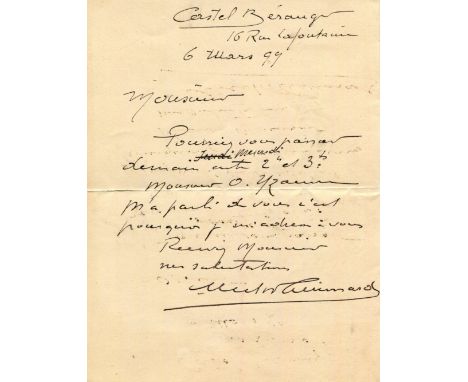 Castel Béranger
16 Rue Lafontaine
6 Mars 99
Monsieur
Pourriez vous passer
Jeudi Mercredi
demain entre 2h et 3h
Monsieur O.
m'a parlé de vous c'est
pourquoi je m'adresse à vous
Recevez Monsieur
mes salutations
Hector Guimard